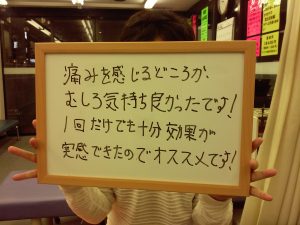 痛みを感じるどころか、
むしろ気持ち良かったです!
1回だけでも十分効果が
実感できたのでオススメです!